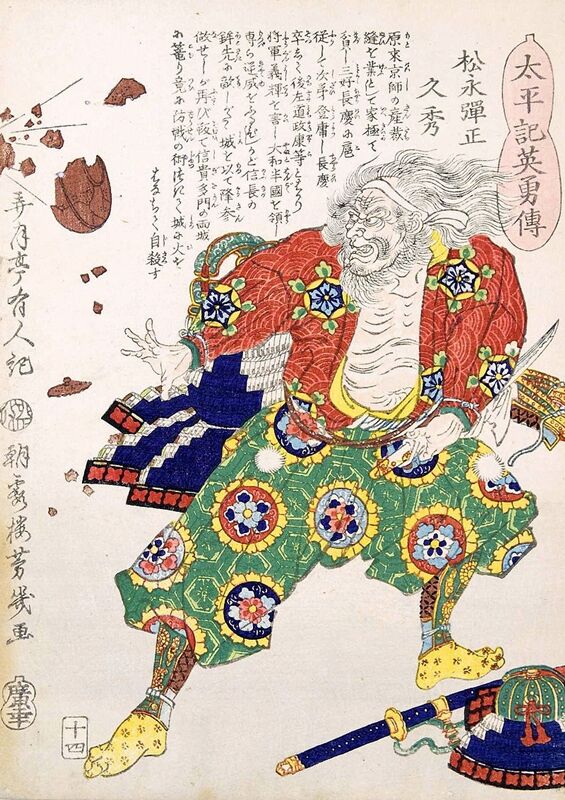 太平記英勇傳
松永彈正
久秀
原来京師の産裁
縫を業として家極て
貧し三好長慶の扈
従して次手登庸し長慶
卒して後左道政康等とはかり
将軍義輝を害し大和半國を領し
専ら逆威をふるひしかど信長の
鉾先に敵しがたく城を以て降参
做せしが再び叛て信貴多門の両城
に篭り竟に防戦の術つきて城に火を
はなちて自殺す
弄月亭有人記
朝霞楼芳幾画
十四